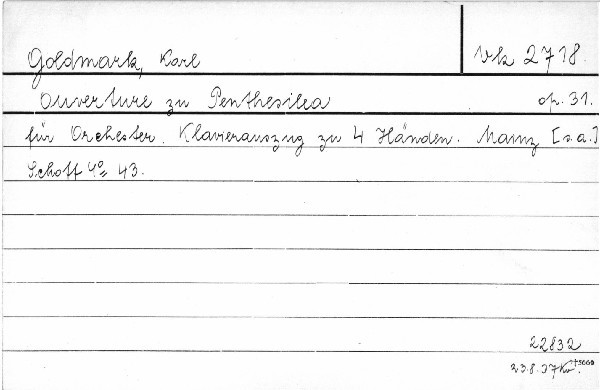 Goldmark, Karl Vk 2718.
Ouverture zu Penthesilea op. 31.
für Orchester. Klavierauszug zu 4 Händen. Mainz [s.a.]
Schott 4° 43.
22832
23.8.37